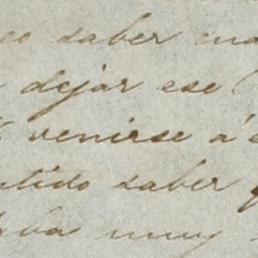 eo saber cua
dejar ese
venirse á e
ntido saber q
ba muy